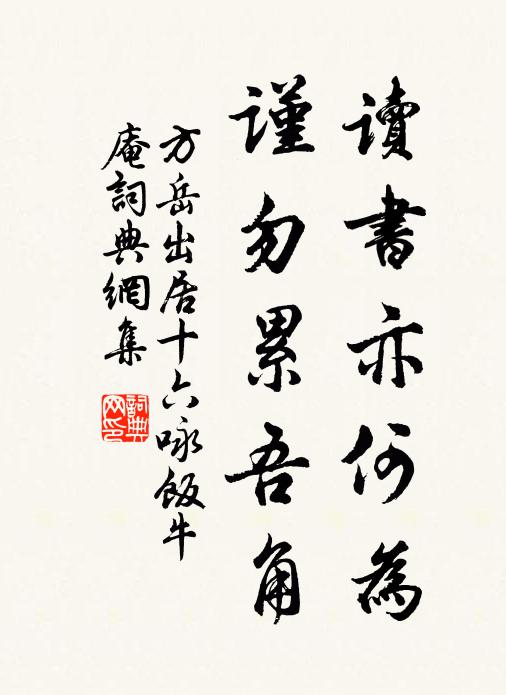 讀書亦何為
謹勿累吾角
方岳出居十六咏飯牛
庵詞典網集
詞典網印